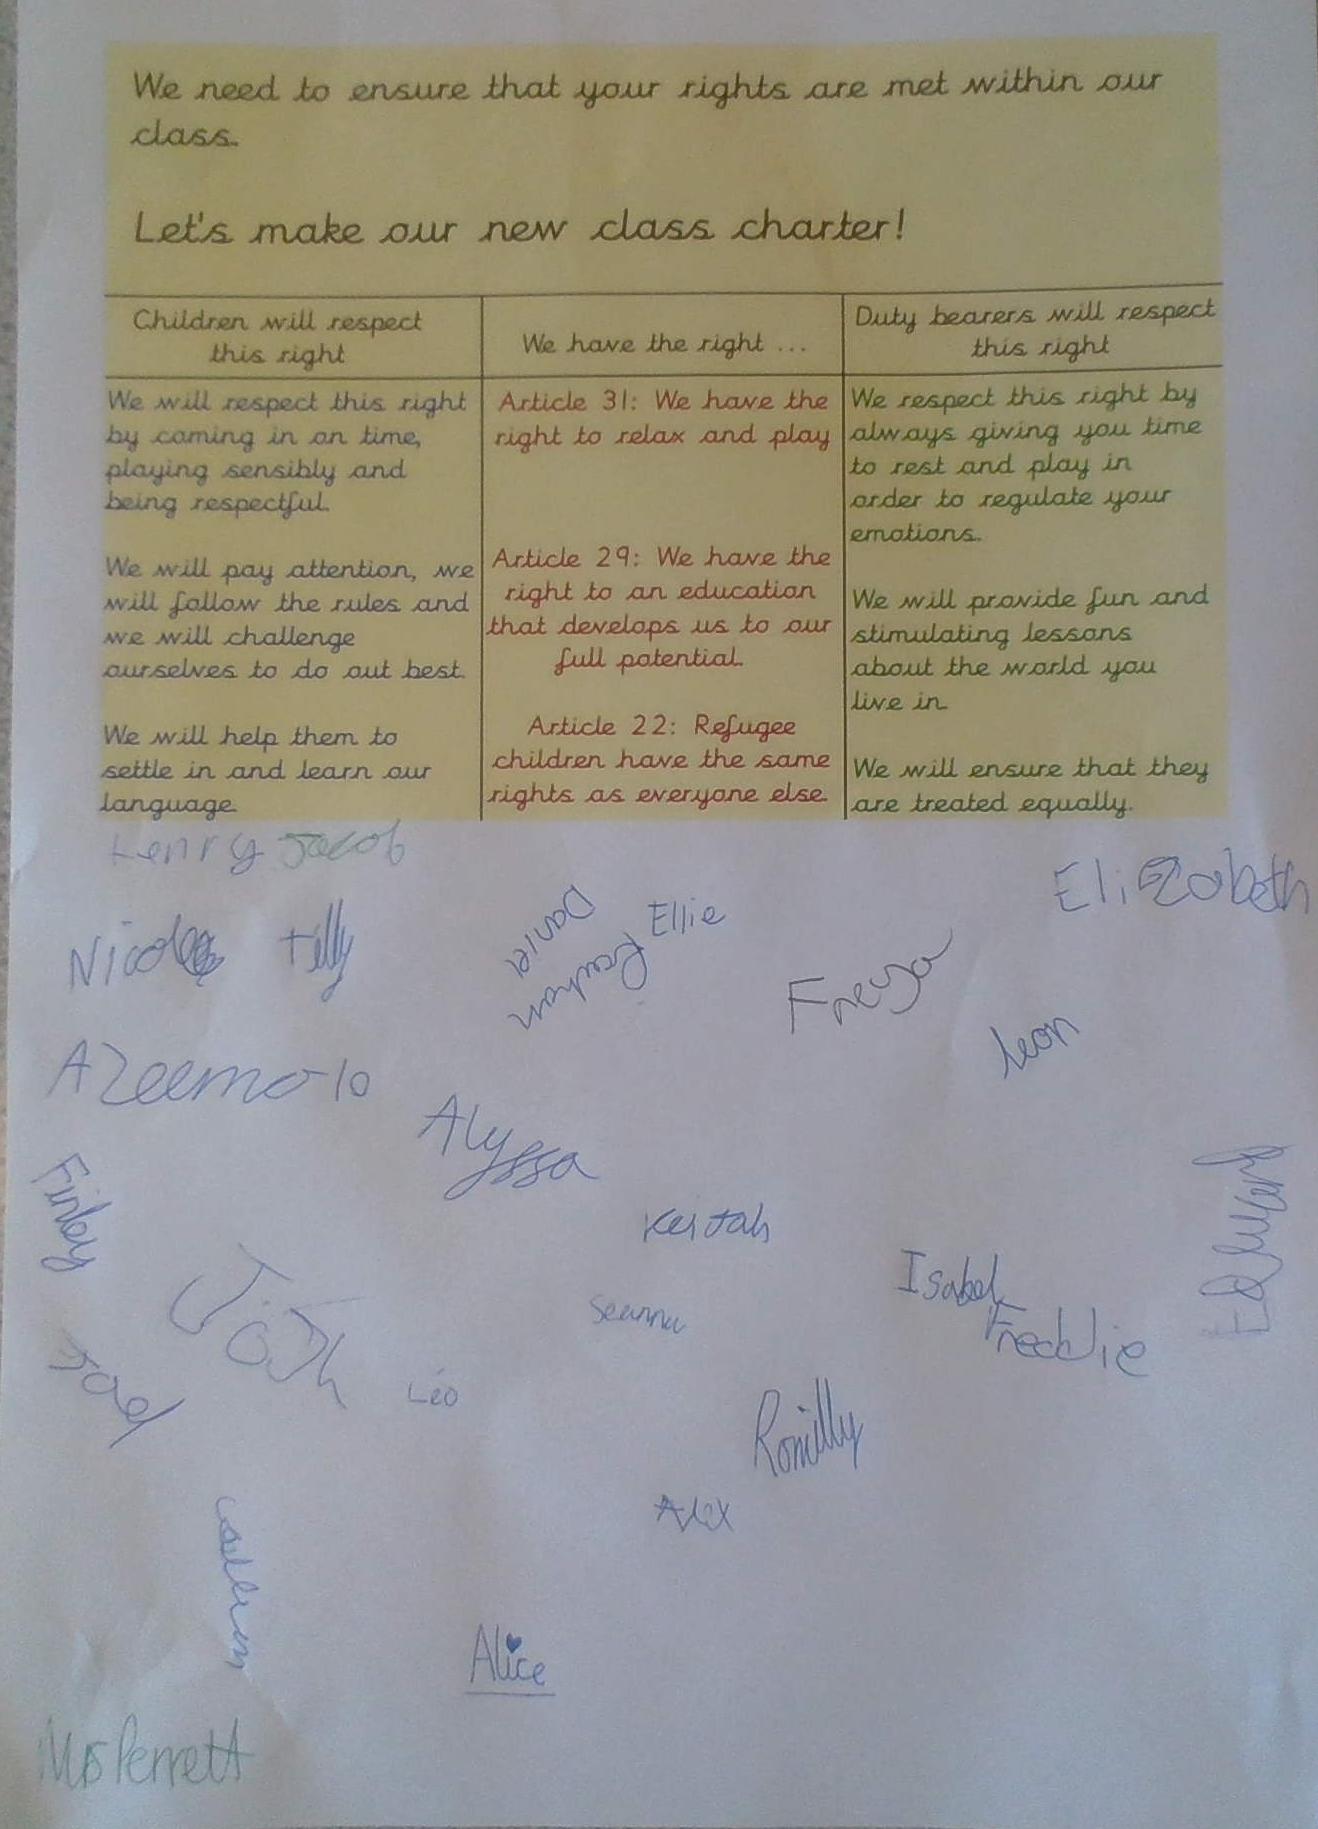 We need to ensure that your rights are met within our
class.
Let's make our new class charter!
Children will respect
this right
We will respect this right
by coming in on time,
playing sensibly and
being respectful.
We will pay attention, we
will follow the rules and
we will challenge
ourselves to do out best.
We will help them to
settle in and learn our
language.
We have the right ...
Article 31: We have the
right to relax and play
Article 29: We have the
right to an education
that develops us to our
full potential.
Article 22: Refugee
children have the same
rights as everyone else.
Duty bearers will respect
this right
We respect this right by
always giving you time
to rest and play in
order to regulate your
emotions.
We will provide fun and
stimulating lessons
about the world you
live in.
We will ensure that they
are treated equally.
Henry Jacob
Elizabeth
Tilly
Daniel
Ellie
Freya
Leon
Alyssa
Finley
Edward
Isabel
Freddie
Josh
Leo
Romilly
Alex
Alice
Mrs Perrett